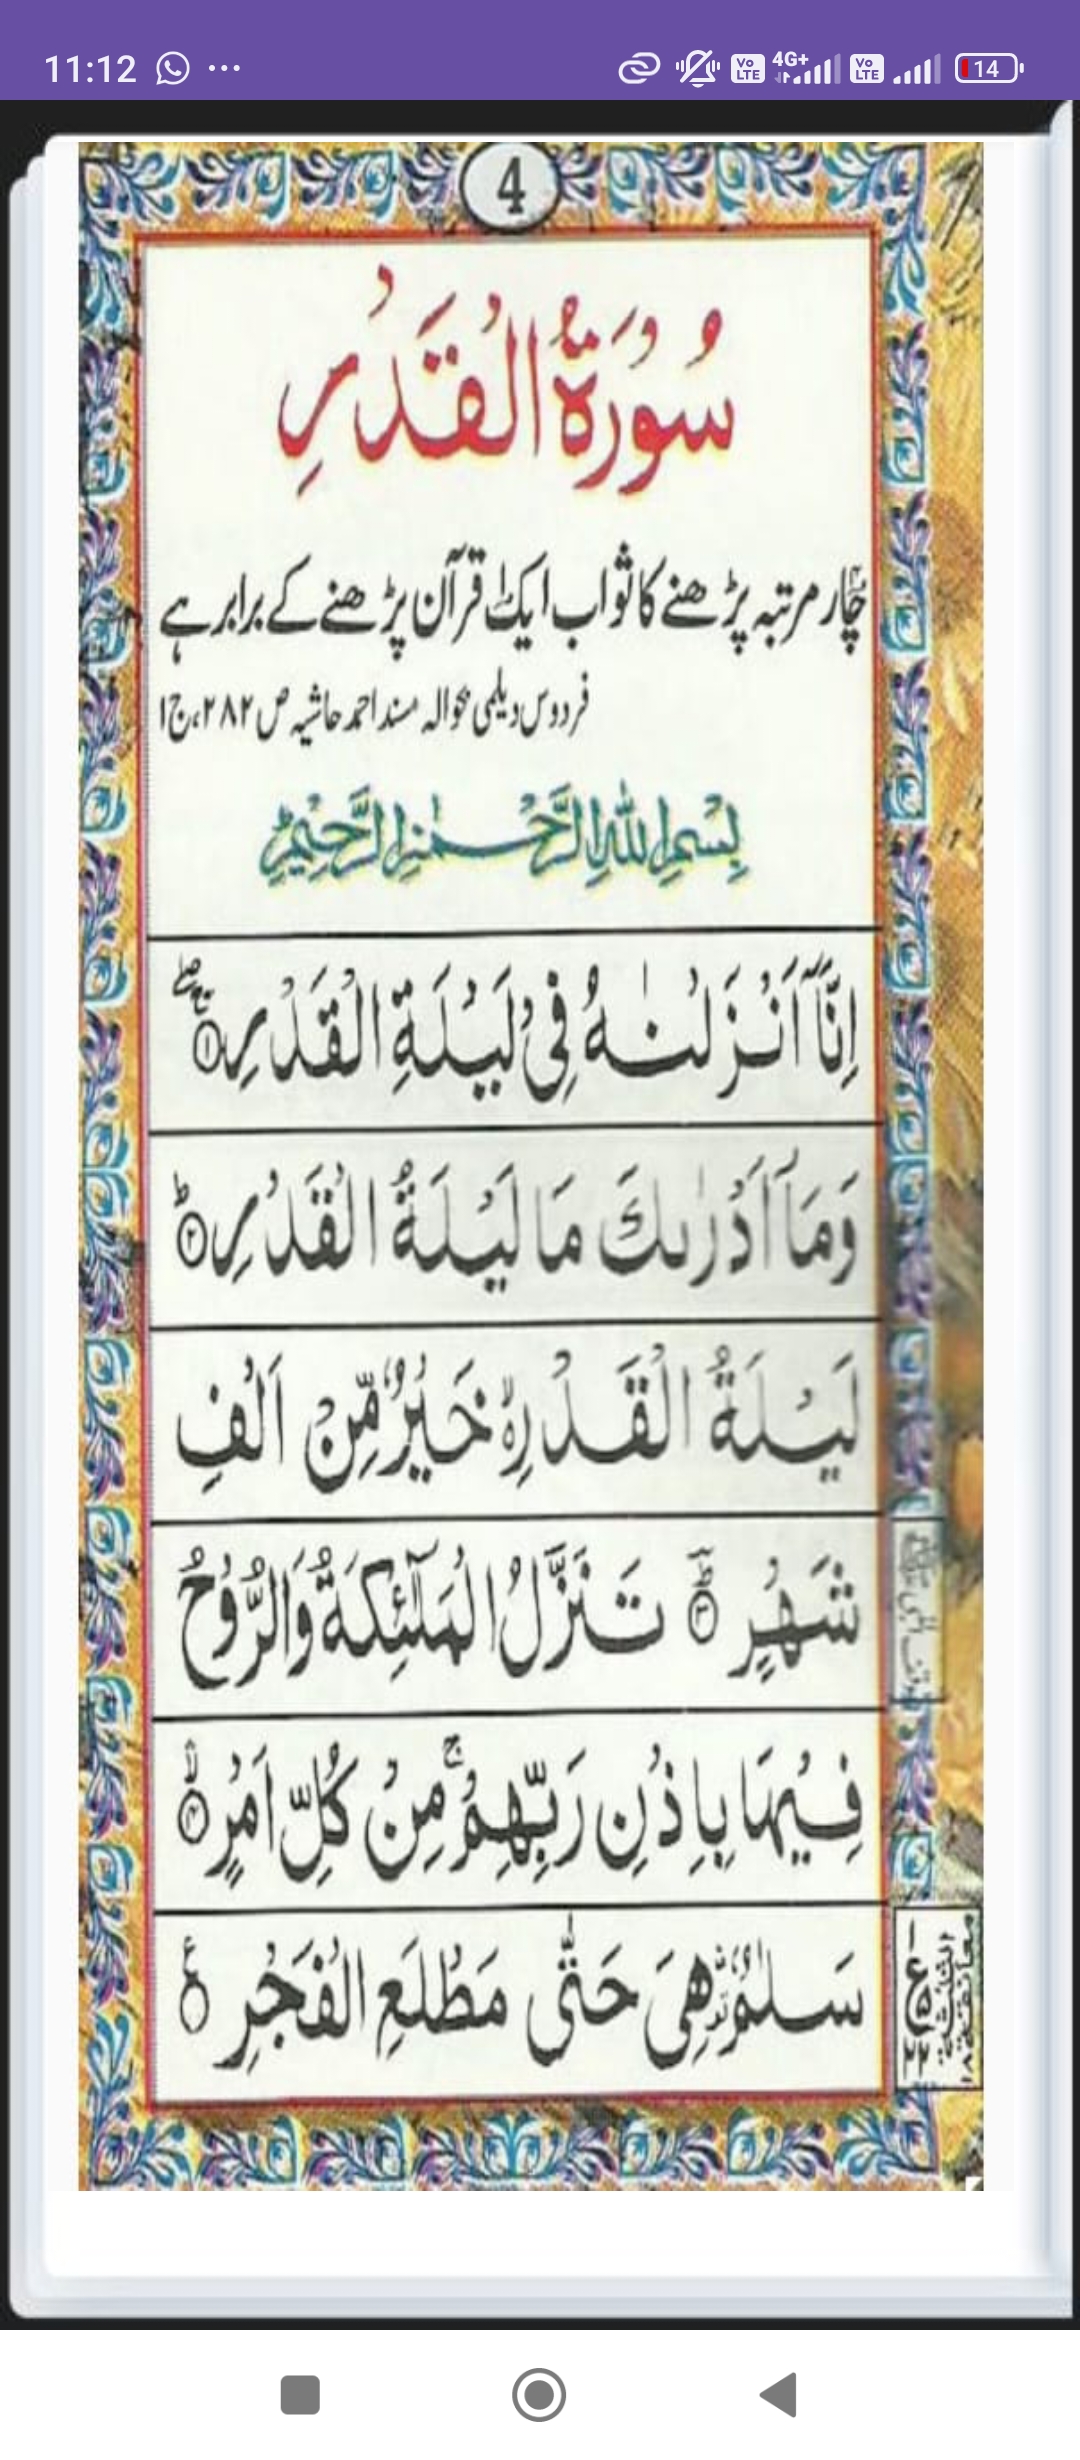 11:12
4G+
Vo LTE
Vo LTE
14
4
سُوْرَةُ الْقَدْرِ
چار مرتبہ پڑھنے کا ثواب ایک قرآن پڑھنے کے برابر ہے
فردوس دیلمی بحوالہ مسند احمد حاشیہ ص ۲۸۲، ج۱
بِسْمِ اللّٰهِ الرَّحْمٰنِ الرَّحِيْمِ
اِنَّاۤ اَنْزَلْنٰهُ فِىْ لَيْلَةِ الْقَدْرِ ۚۖ ﴿۱﴾
وَمَاۤ اَدْرٰىكَ مَا لَيْلَةُ الْقَدْرِ ؕ ﴿۲﴾
لَيْلَةُ الْقَدْرِ ۙ خَيْرٌ مِّنْ اَلْفِ
شَهْرٍ ؕ ﴿۳﴾ تَنَزَّلُ الْمَلٰٓئِكَةُ وَالرُّوْحُ
فِيْهَا بِاِذْنِ رَبِّهِمْ ۚ مِنْ كُلِّ اَمْرٍ ۙ ﴿۴﴾
سَلٰمٌ ۛ هِىَ حَتّٰى مَطْلَعِ الْفَجْرِ ع
ع
۵
۲۲